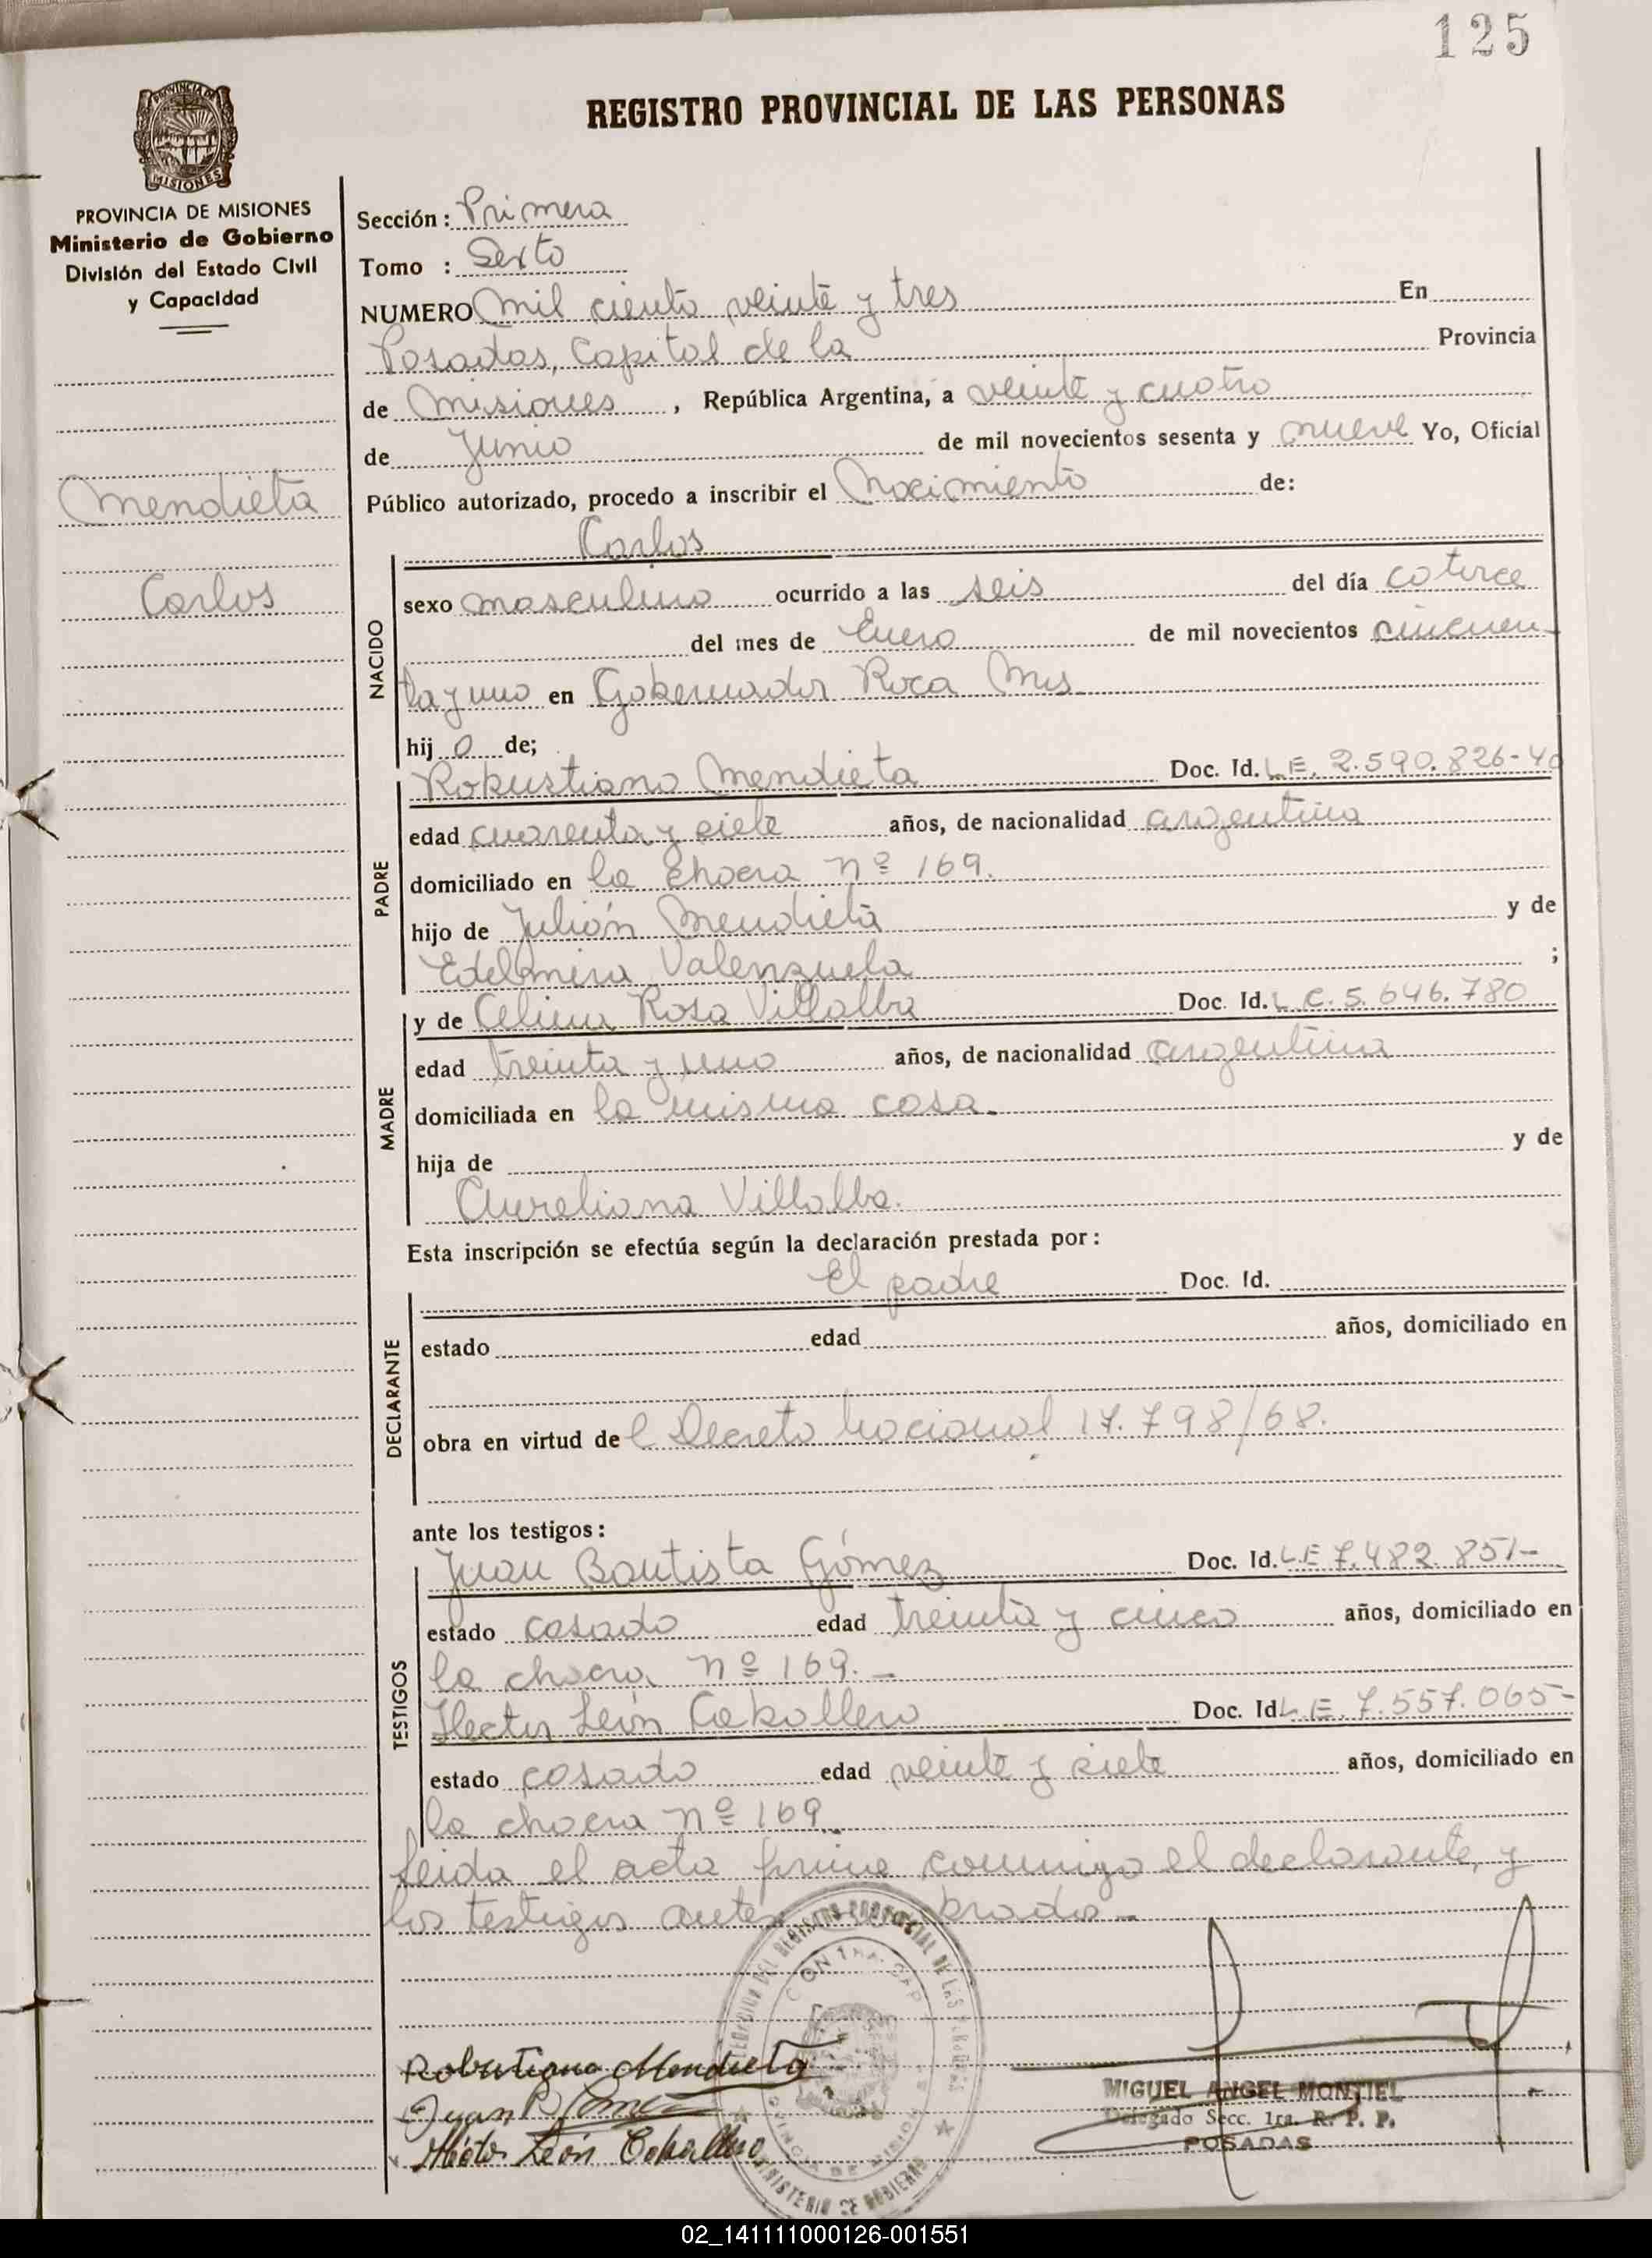 125
REGISTRO PROVINCIAL DE LAS PERSONAS
PROVINCIA DE MISIONES
Ministerio de Gobierno
División del Estado Civil
y Capacidad
Mendieta
Carlos
Sección: Primera
Tomo : Sexto
NUMERO Mil ciento veinte y tres En
Posadas, Capital de la Provincia
de Misiones, República Argentina, a veinte y cuatro
de Junio de mil novecientos sesenta y nueve Yo, Oficial
Público autorizado, procedo a inscribir el Nacimiento de:
Carlos
NACIDO
sexo masculino ocurrido a las seis del día catorce
del mes de Enero de mil novecientos cincuen-
ta y uno en Gobernador Roca Mis.
hijo de;
PADRE
Robustiano Mendieta Doc. Id. L.E. 2.590.826-
edad cuarenta y siete años, de nacionalidad argentina
domiciliado en la Chacra nº 169.
hijo de Julián Mendieta y de
Edelmira Valenzuela ;
MADRE
y de Celina Rosa Villalba Doc. Id. L.C. 5.646.780
edad treinta y uno años, de nacionalidad argentina
domiciliada en la misma casa.
hija de y de
Aureliana Villalba.
Esta inscripción se efectúa según la declaración prestada por:
DECLARANTE
El padre Doc. Id.
estado edad años, domiciliado en
obra en virtud del Decreto Nacional 17.798/68.
ante los testigos:
TESTIGOS
Juan Bautista Gómez Doc. Id. L.E 7.482.851-
estado casado edad treinta y cinco años, domiciliado en
la chacra nº 169.-
Hector León Caballero Doc. Id L.E. 7.557.065-
estado casado edad veinte y siete años, domiciliado en
la chacra nº 169.
Leida el acta firma conmigo el declarante, y
los testigos antes brados-
Robustiano Mendieta
Juan B Gomez
Héctor León Caballero
MIGUEL ANGEL MONTIEL
Delegado Secc. 1ra. R. P. P.
POSADAS
MINISTERIO DE GOBIERNO
02_141111000126-001551